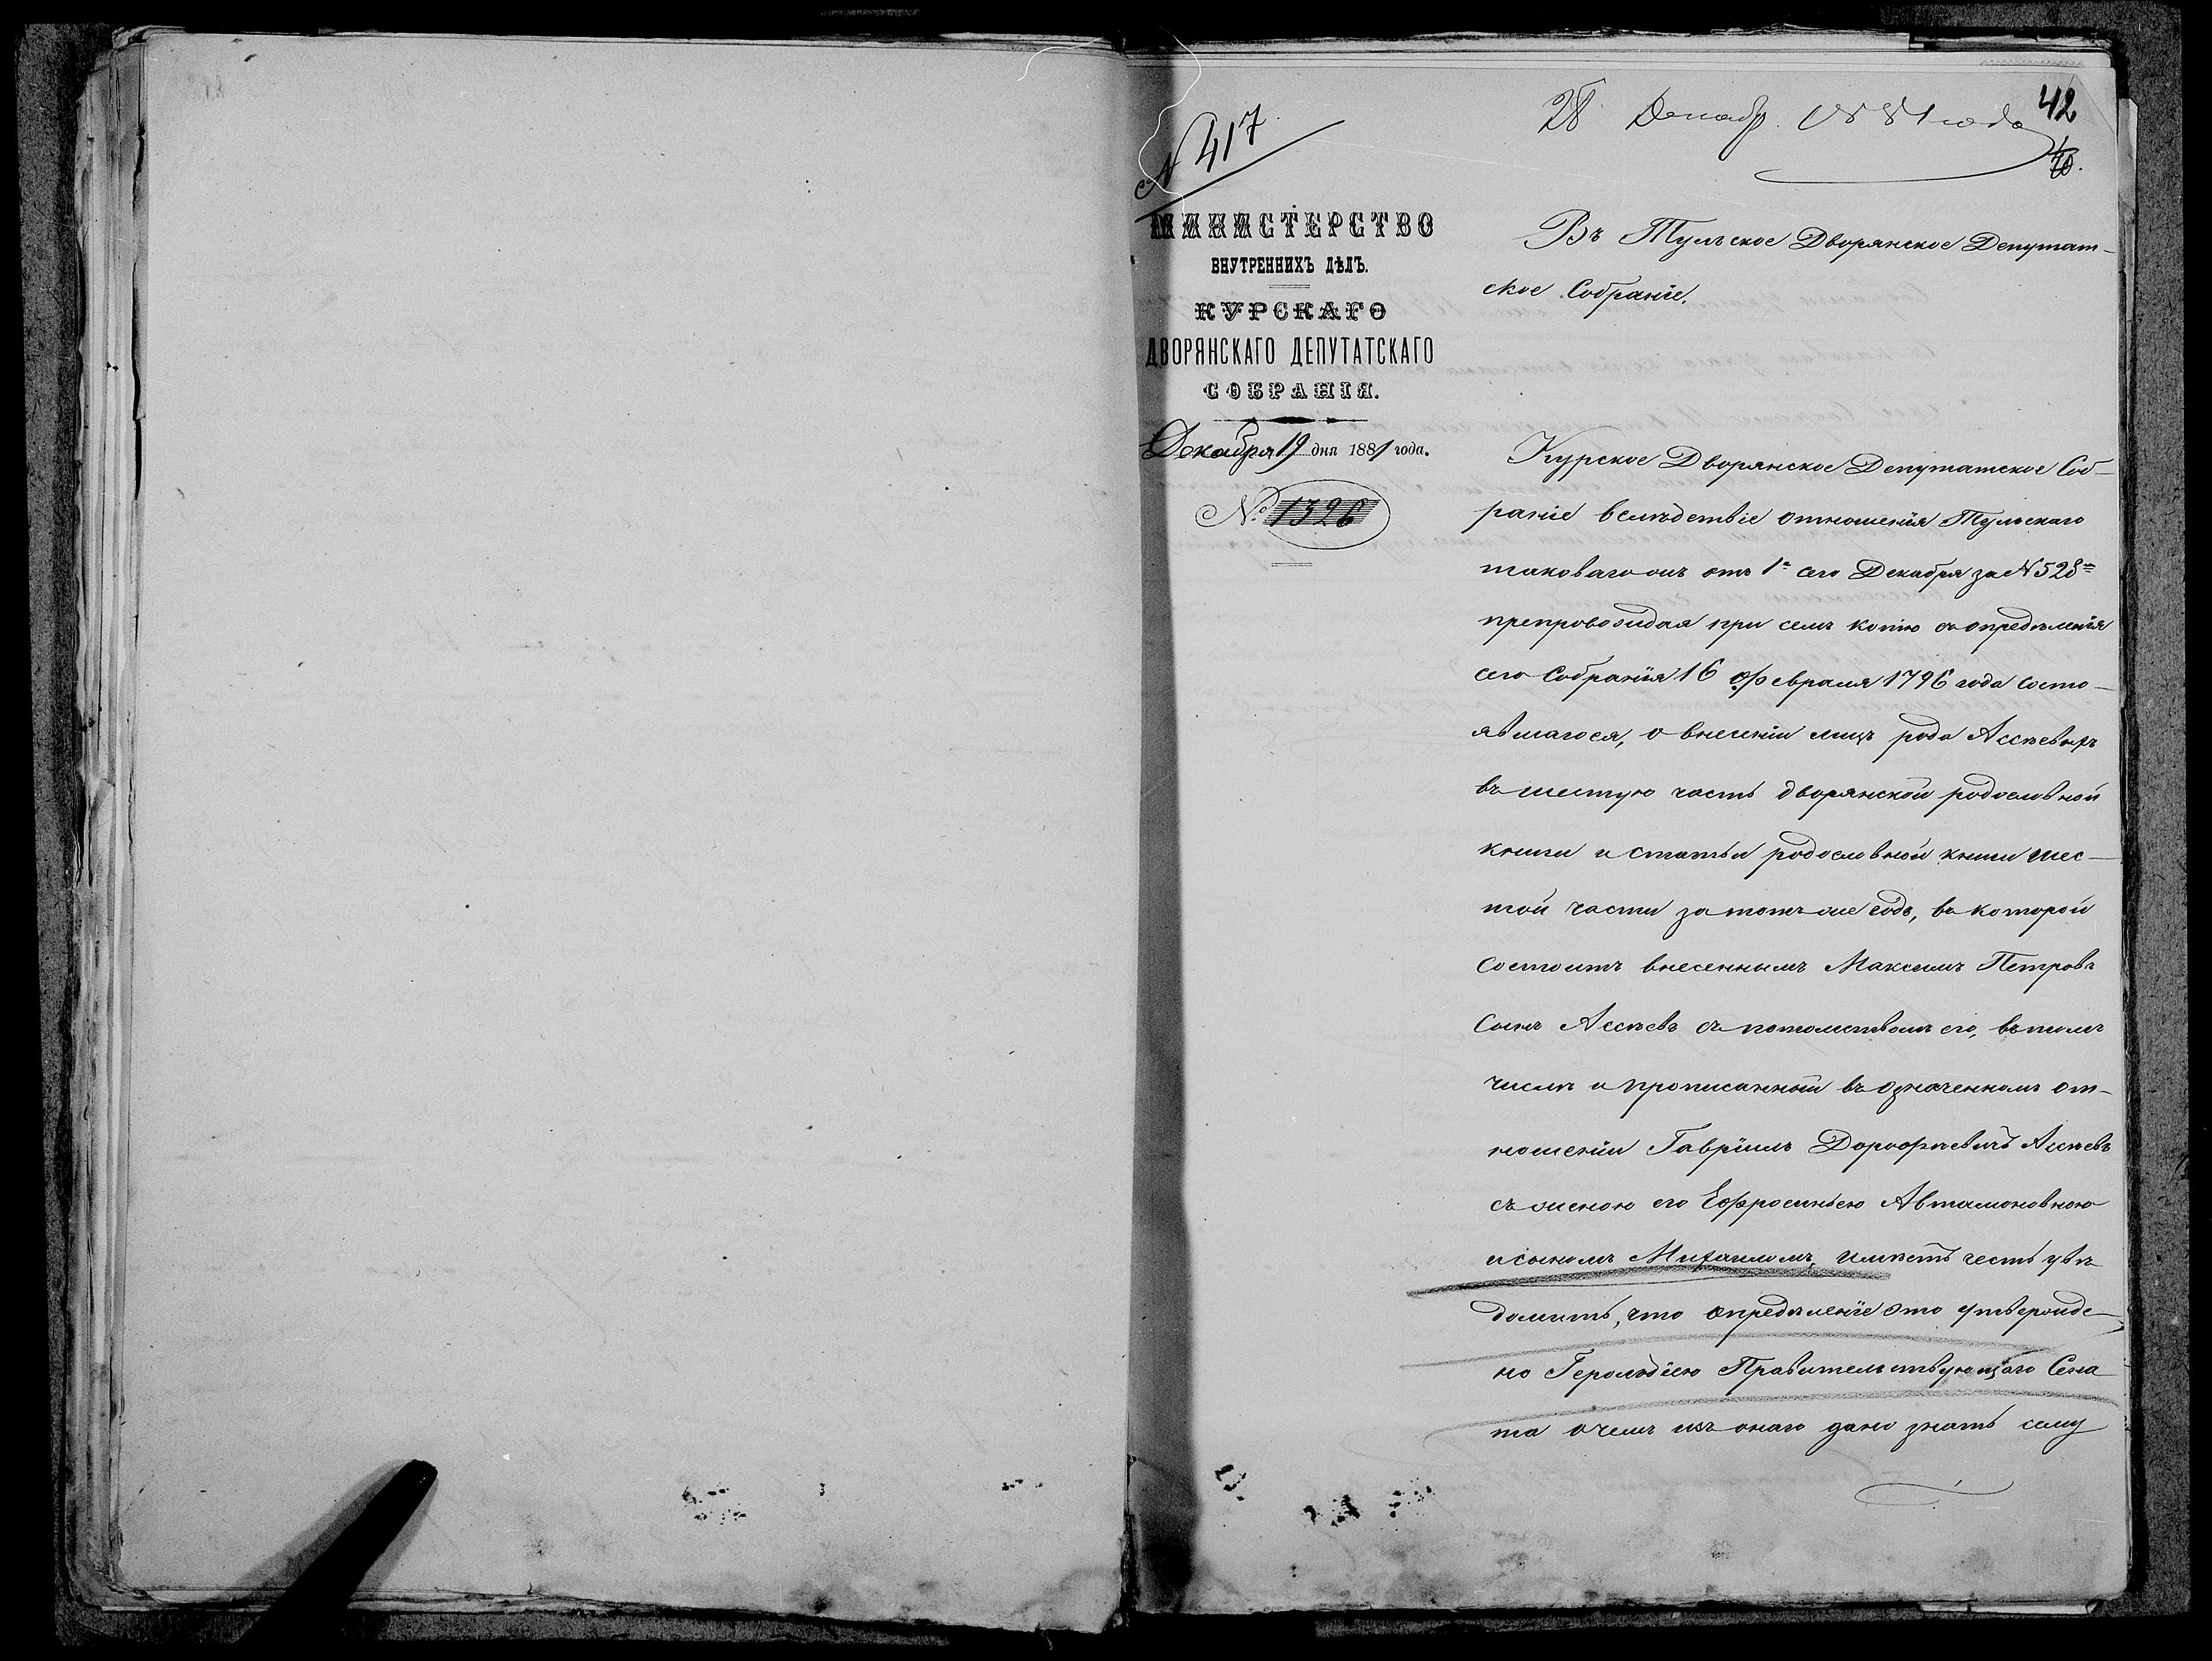 № 417
28 Декабр. 1881 года
42
МИНИСТЕРСТВО
ВНУТРЕННИХЪ ДѢЛЪ.
КУРСКАГО
ДВОРЯНСКАГО ДЕПУТАТСКАГО
СОБРАНІЯ.
Декабря 19 дня 1881 года.
№ 1326
Въ Тульское Дворянское Депутат-
ское Собраніе.
Курское Дворянское Депутатское Соб-
раніе вслѣдствіе отношенія Тульскаго
таковагожъ отъ 1го сего Декабря за № 528мъ
препровождая при семъ копію съ опредѣленія
сего Собранія 16 Февраля 1796 года состо-
явшагося, о внесеніи лицъ рода Ассѣевыхъ
въ шестую часть дворянской родословной
книги и статьи родословной книги шес-
той части за тотъ же годъ, въ которой
состоитъ внесеннымъ Максимъ Петровъ
Сынъ Ассѣевъ съ потомствомъ его, въ томъ
числѣ и прописанный въ означенномъ от-
ношеніи Гавріилъ Дорофѣевичъ Ассѣевъ
съ женою его Ефросиньею Автамоновною
и сыномъ Михаиломъ, имѣетъ честь увѣ-
домить, что опредѣленіе это утвержде-
но Герольдіею Правительствующаго Сена
та о чемъ изъ онаго дано знать сему